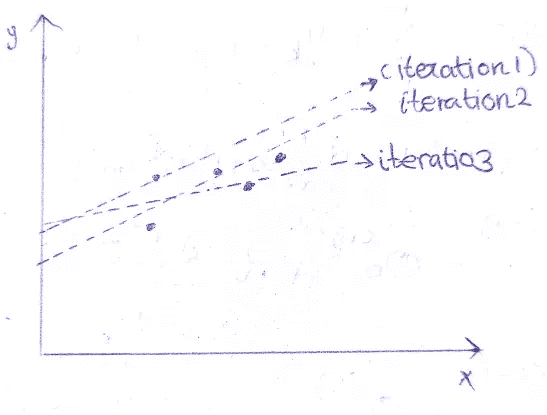 y
(iteration 1)
iteration 2
iteratio3
x